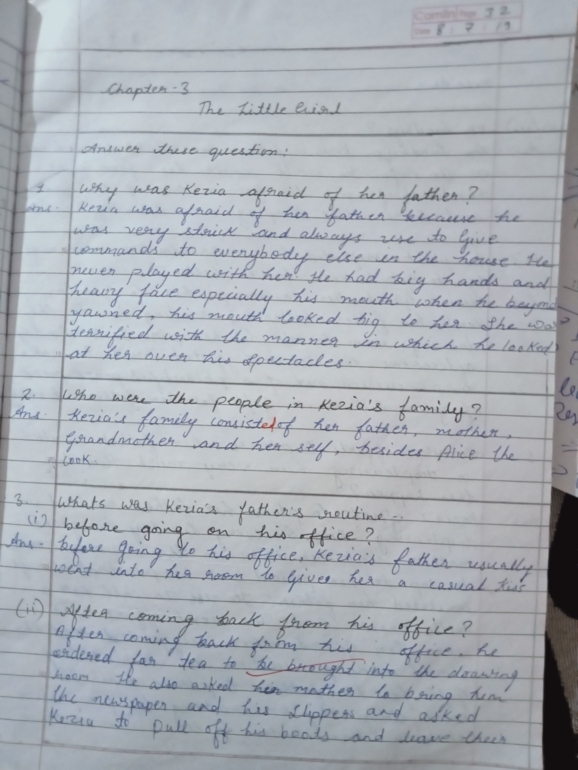 32
8 7 19
Chapter-3
The Little Girl
Answer these question:
1. Why was Kezia afraid of her father?
Ans. Kezia was afraid of her father because he
was very strick and always use to give
commands to everybody else in the house. He
never played with her. He had big hands and
heavy face especially his mouth when he
yawned, his mouth looked big to her. She was
terrified with the manner in which he looked
at her over his spectacles.
2. Who were the people in Kezia's family?
Ans. Kezia's family consisted of her father, mother,
Grandmother and her self, besides Alice the
cook.
3. Whats was Kezia's father's routine --
(i) before going on his office?
Ans. before going to his office, Kezia's father usually
went into her room to gives her a casual kiss
(ii) After coming back from his office?
After coming back from his office, he
ordered for tea to be brought into the drawing
room He also asked her mother to bring him
the newspaper and his slippers and asked
Kezia to pull off his boots and leave them